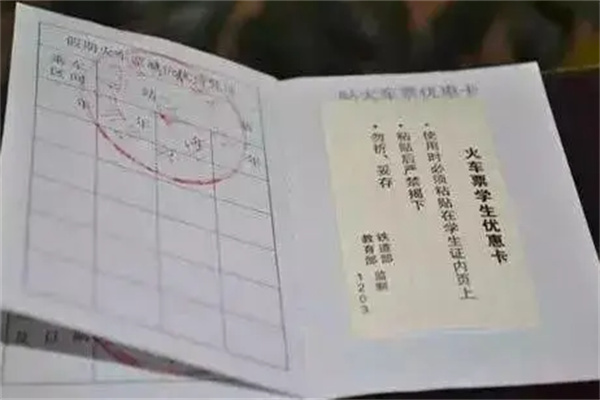 假期火车票
乘车
区间
站
年 年 年
贴火车票优惠卡
火车票学生优惠卡
·使用时必须粘贴在学生证内页上
·粘贴后严禁揭下
·勿折、妥存
铁道部 监制
教育部
1203